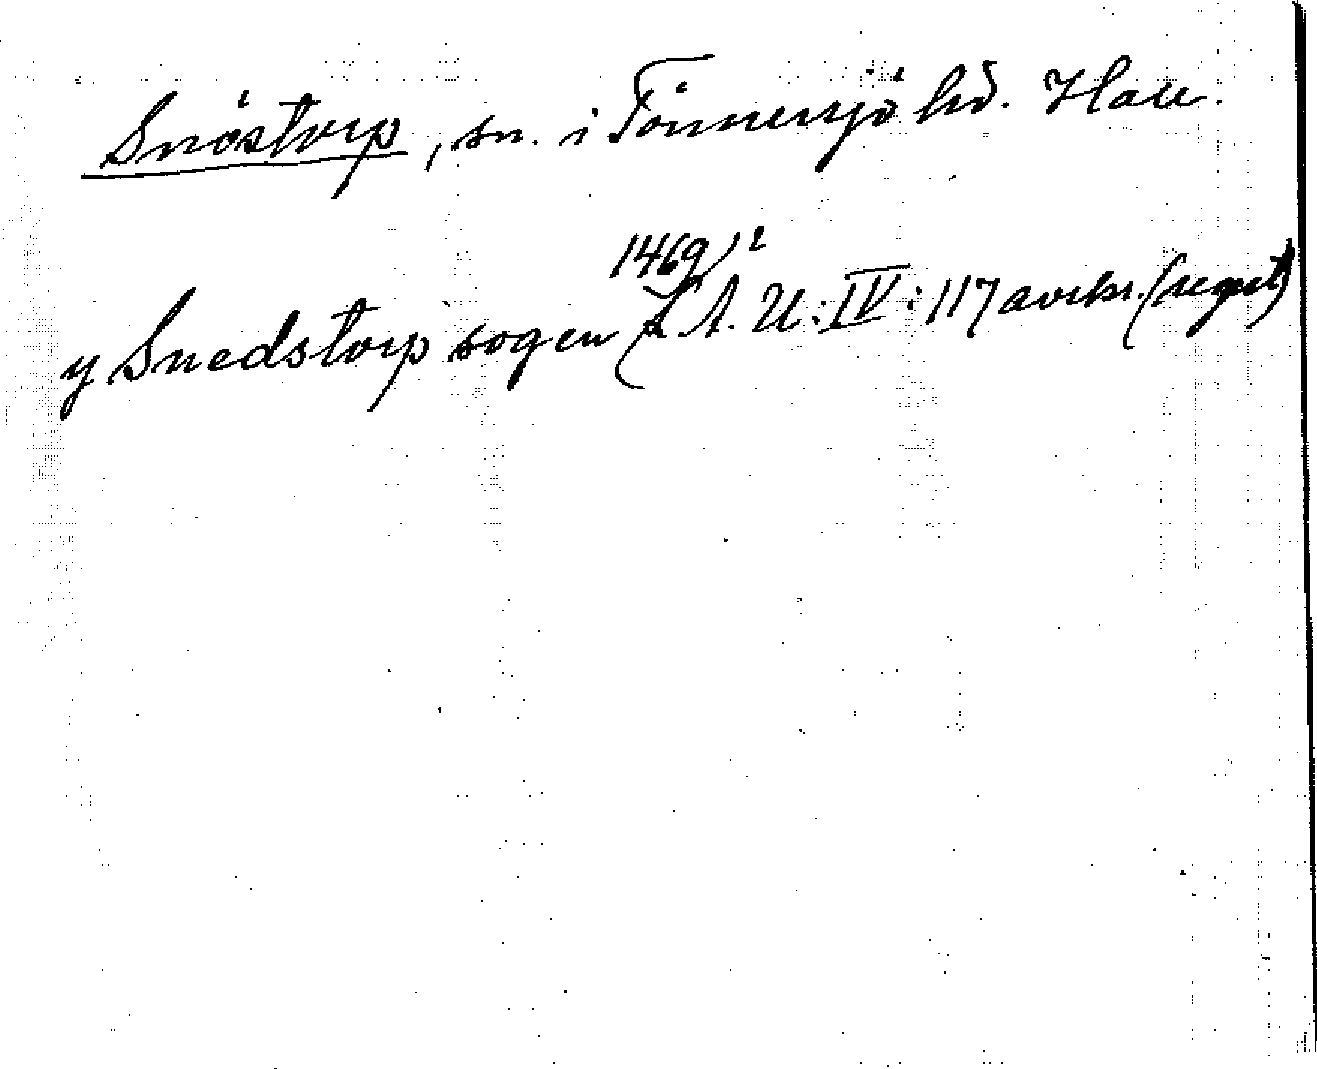 Snöstorp, sn. i Tönnersjö hd. Hall.
1469 1/2
y Snedstorp sogen L. A. U: IV: 117 avskr. (regest)